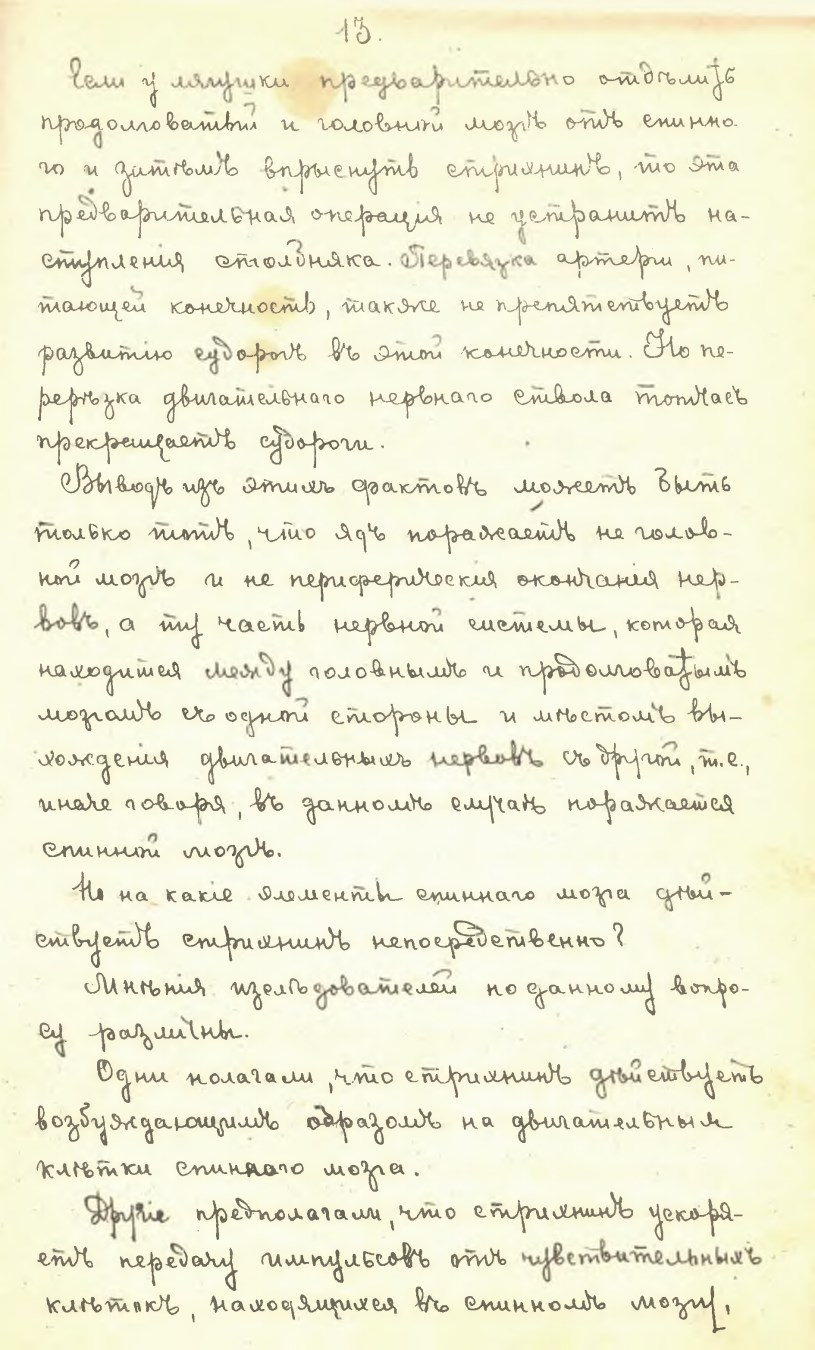 13.
Если у лягушки предварительно отдѣлить
продолговатый и головной мозгъ отъ спинно-
го и затѣмъ впрыснуть стрихнинъ, то эта
предварительная операция не устранитъ на-
ступленія столбняка. Перевязка артеріи, пи-
тающей конечность, также не препятствуетъ
развитію судорогъ въ этой конечности. Но пе-
рерѣзка двигательнаго нервнаго ствола тотчасъ
прекращаетъ судороги.
Выводъ изъ этихъ фактовъ можетъ быть
только тотъ, что ядъ поражаетъ не голов-
ной мозгъ и не периферическія окончанія нер-
вовъ, а ту часть нервной системы, которая
находится между головнымъ и продолговатымъ
мозгомъ съ одной стороны и мѣстомъ вы-
хожденія двигательныхъ нервовъ съ другой, т.е.,
иначе говоря, въ данномъ случаѣ поражается
спинной мозгъ.
Но на какіе элементы спиннаго мозга дѣй-
ствуетъ стрихнинъ непосредственно?
Мнѣнія изслѣдователей по данному вопро-
су различны.
Одни полагали, что стрихнинъ дѣйствуетъ
возбуждающимъ образомъ на двигательныя
клѣтки спиннаго мозга.
Другіе предполагали, что стрихнинъ ускоря-
етъ передачу импульсовъ отъ чувствительныхъ
клѣтокъ, находящихся въ спинномъ мозгу,